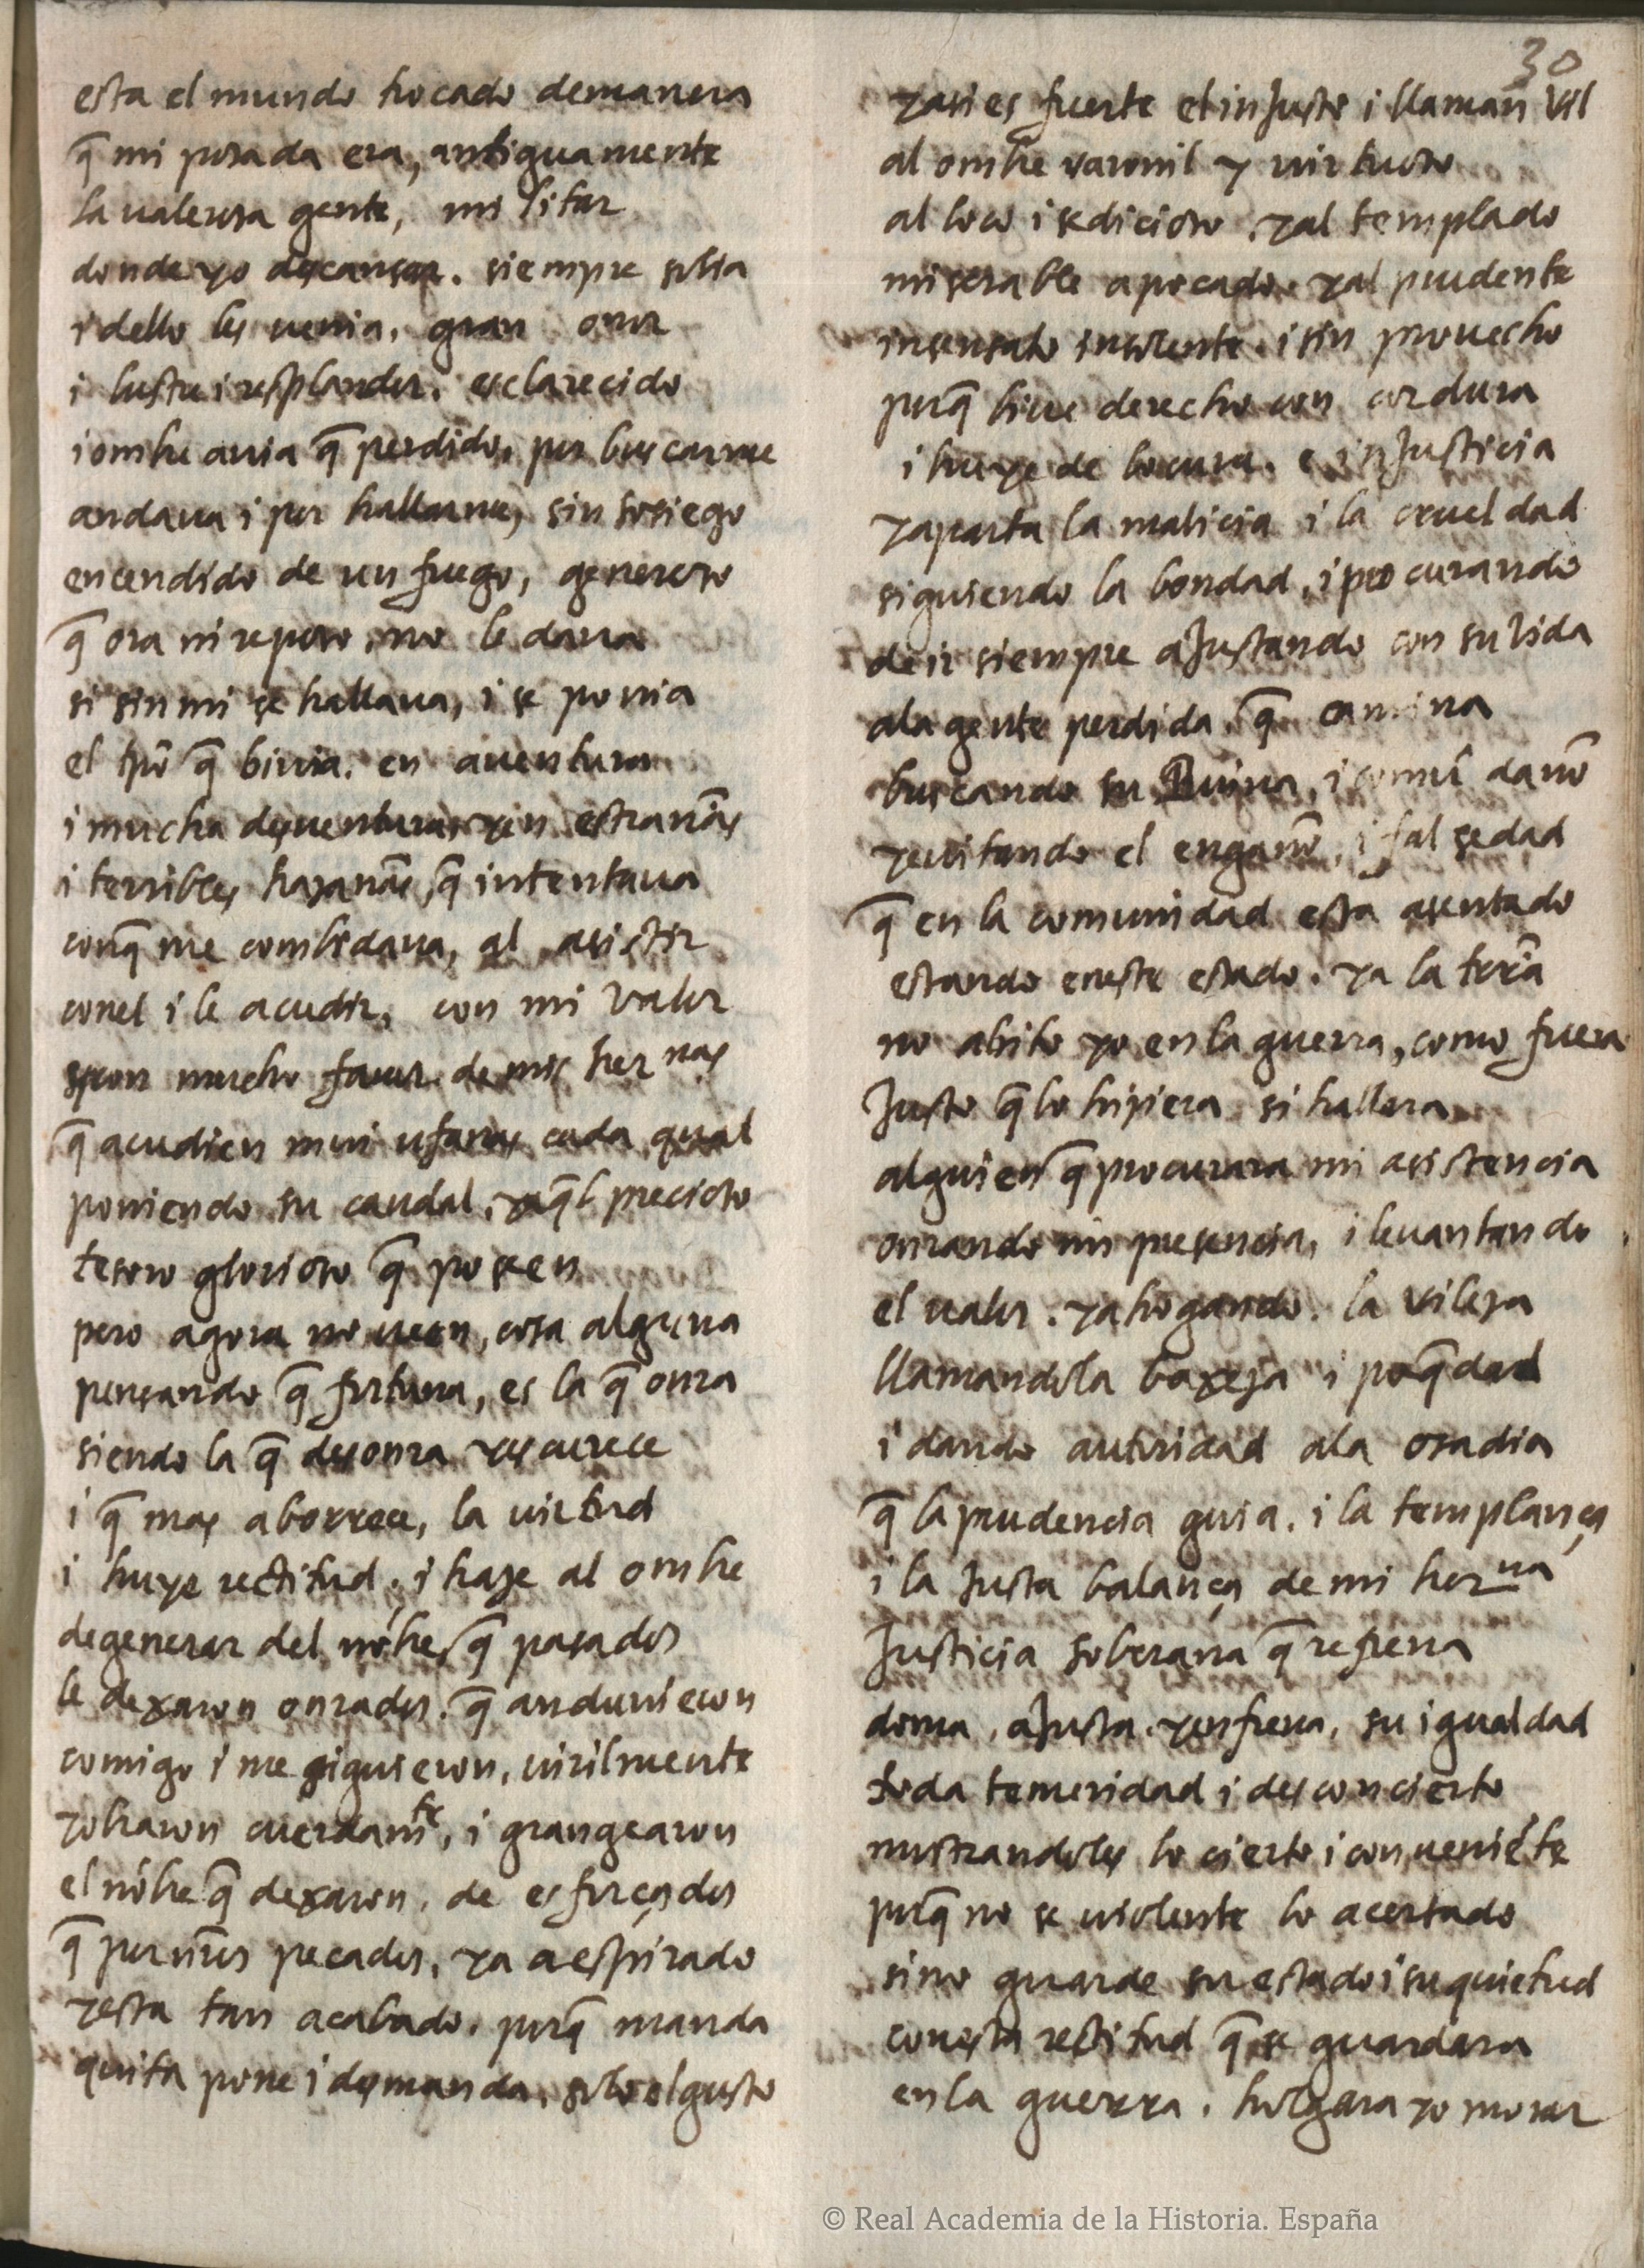 30
esta el mundo trocado demanera
q̃ mi posada era, antiguamente
la ualerosa gente, militar
donde yo descansar. siempre solia
i dello les uenia. gran onor
i lustre i resplandor. esclarecido
i ombre auia q̃ perdido, por buscarme
andaua i por hallarme, sin sosiego
encendido de un fuego, generoso
q̃ ora ni reposo, no le daua
si sin mi se hallaua, i se ponia
el tpõ q̃ biuia. en auentura
i mucha desuentura, yen estrañas
i terribles hazañas, q̃ intentaua
conq̃ me combidaua, al asistir
conel i le acudir, con mi valor
con mucho fauor de mis hernas
q̃ acudien mui ufanas cada qual
poniendo su caudal, yaq̃l precioso
tesoro glorioso q̃ poseen
pero agora no ueen, cosa alguna
pensando q̃ fortuna, es la q̃ onra
siendo la q̃ desonra yescurece
i q̃ mas aborrece, la uirtud
i huye rectitud, i haze al ombre
degenerar del nõbre, q̃ pasados
le dexaron onrados. q̃ anduuieron
comigo i me siguieron, uirilmente
yobraron cuerdamte, i grangearon
el nõbre q̃ dexaron, de esforçados
q̃ por nr̃os pecados, ya a espirado
yesta tan acabado. porq̃ manda
quita pone i desmanda, solo el gusto
yasi es fuerte el inJusto i llaman vil
al ombre varonil y uirtuoso
al loco i sedicioso. yal templado
miserable apocado. yal prudente
insensato insolente. i sin prouecho
porq̃ biue derecho con cordura
i huye de locura. e inJusticia
yaparta la malicia i la crueldad
siguiendo la bondad, i procurando
de ir siempre aJustando con su vida
ala gente perdida, q̃ camina
buscando su Ruina, i comũ daño
yeuitando el engaño, i falsedad
q̃ en la comunidad esta asentado
estando eneste estado. ya la tierra
no abito yo en la guerra, como fuera
Justo q̃ lo hiziera si hallara
alguien q̃ procurara mi asistencia
onrando mi presencia, i leuantando
el ualor. yahogando. la vileza
llamandola baxeza i poq̃dad
i dando autoridad ala osadia
q̃ la prudencia guia. i la templança
i la Justa balança de mi herna
Justicia soberana q̃ refrena
doma, aJusta. yenfrena, su igualdad
toda temeridad i desconcierto
mostrandoles lo cierto i conueniẽte
porq̃ no se uiolente lo acertado
sino guarde su estado i su quietud
conesta rectitud q̃ se guardara
enla guerra. holgara yo morar
© Real Academia de la Historia. España